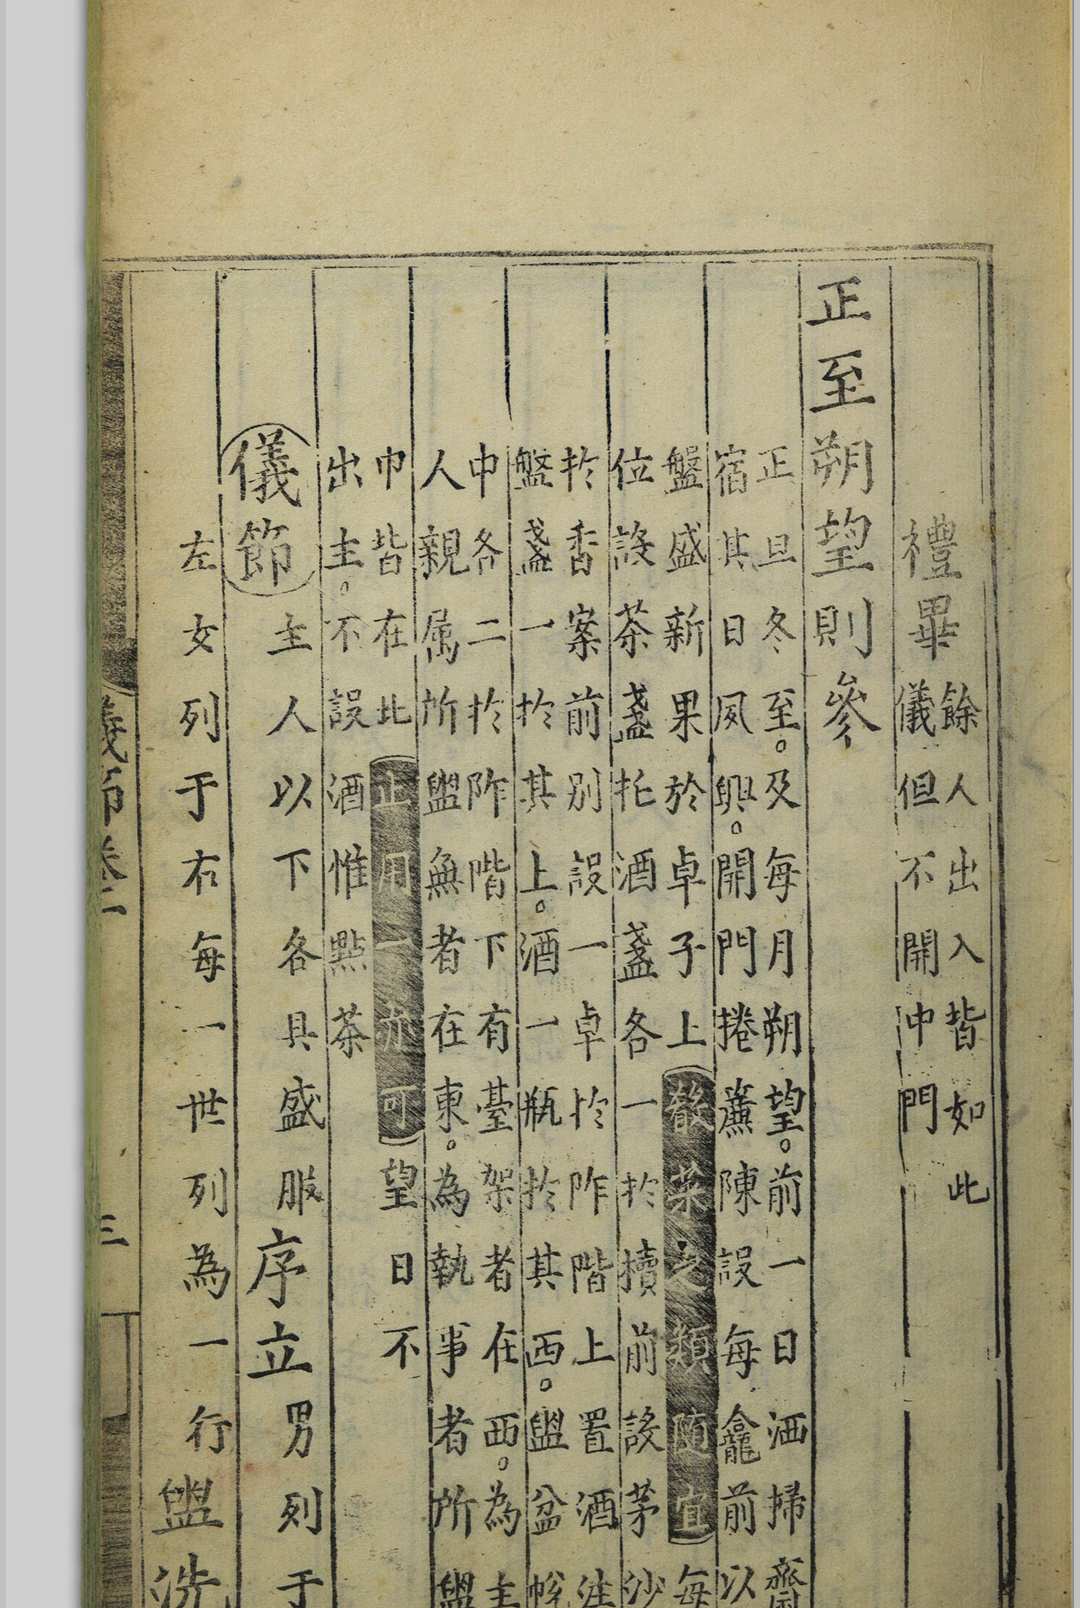 禮畢
餘人出入皆如此
儀但不開中門
正至朔望則參
正旦冬至。及每月朔望。前一日洒掃齋
宿其日夙興。開門捲簾陳設每龕前以
盤盛新果於卓子上散菜之類随宜每
位設茶盞托酒盞各一扵櫝前設茅沙
扵香案前別設一卓扵阼階上置酒注
盤盞一扵其上。酒一瓶扵其西。盥盆帨
巾各二扵阼階下有臺架者在西。為主
人親属所盥無者在東。為執事者所盥
巾皆在此正用一亦可望日不
出主。不設酒惟點茶
儀節
主人以下各具盛服序立男列于
左女列于右每一世列為一行盥洗
儀節卷一
三